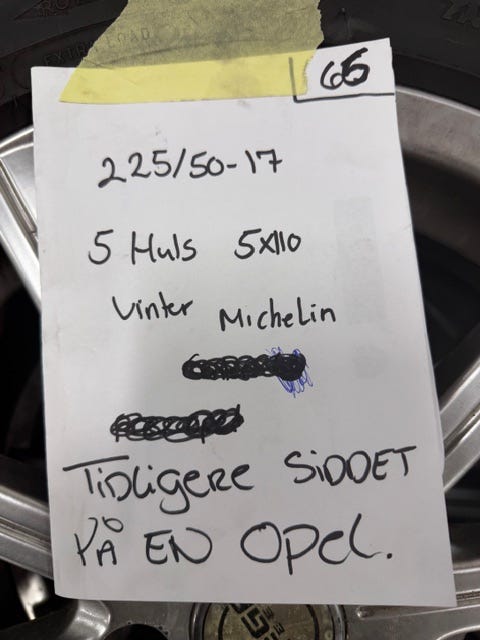 EXTRA LOAD
65
225/50-17
5 Huls 5x110
Vinter Michelin
TiDLigere SiDDET
PÅ EN Opel.